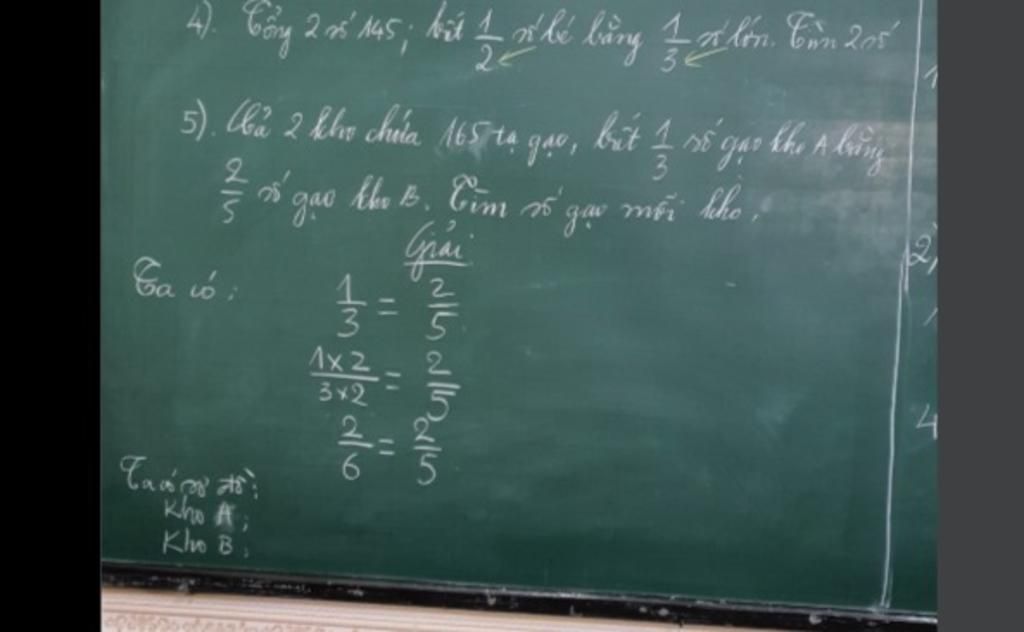 4). Tổng 2 số 145; biết 1/2 số bé bằng 1/3 số lớn. Tìm 2 số
5). Cả 2 kho chứa 165 tạ gạo, biết 1/3 số gạo kho A bằng
2/5 số gạo kho B. Tìm số gạo mỗi kho.
Giải
Ta có: 1/3 = 2/5
1×2/3×2 = 2/5
2/6 = 2/5
Ta có sơ đồ:
Kho A:
Kho B:
2)
4